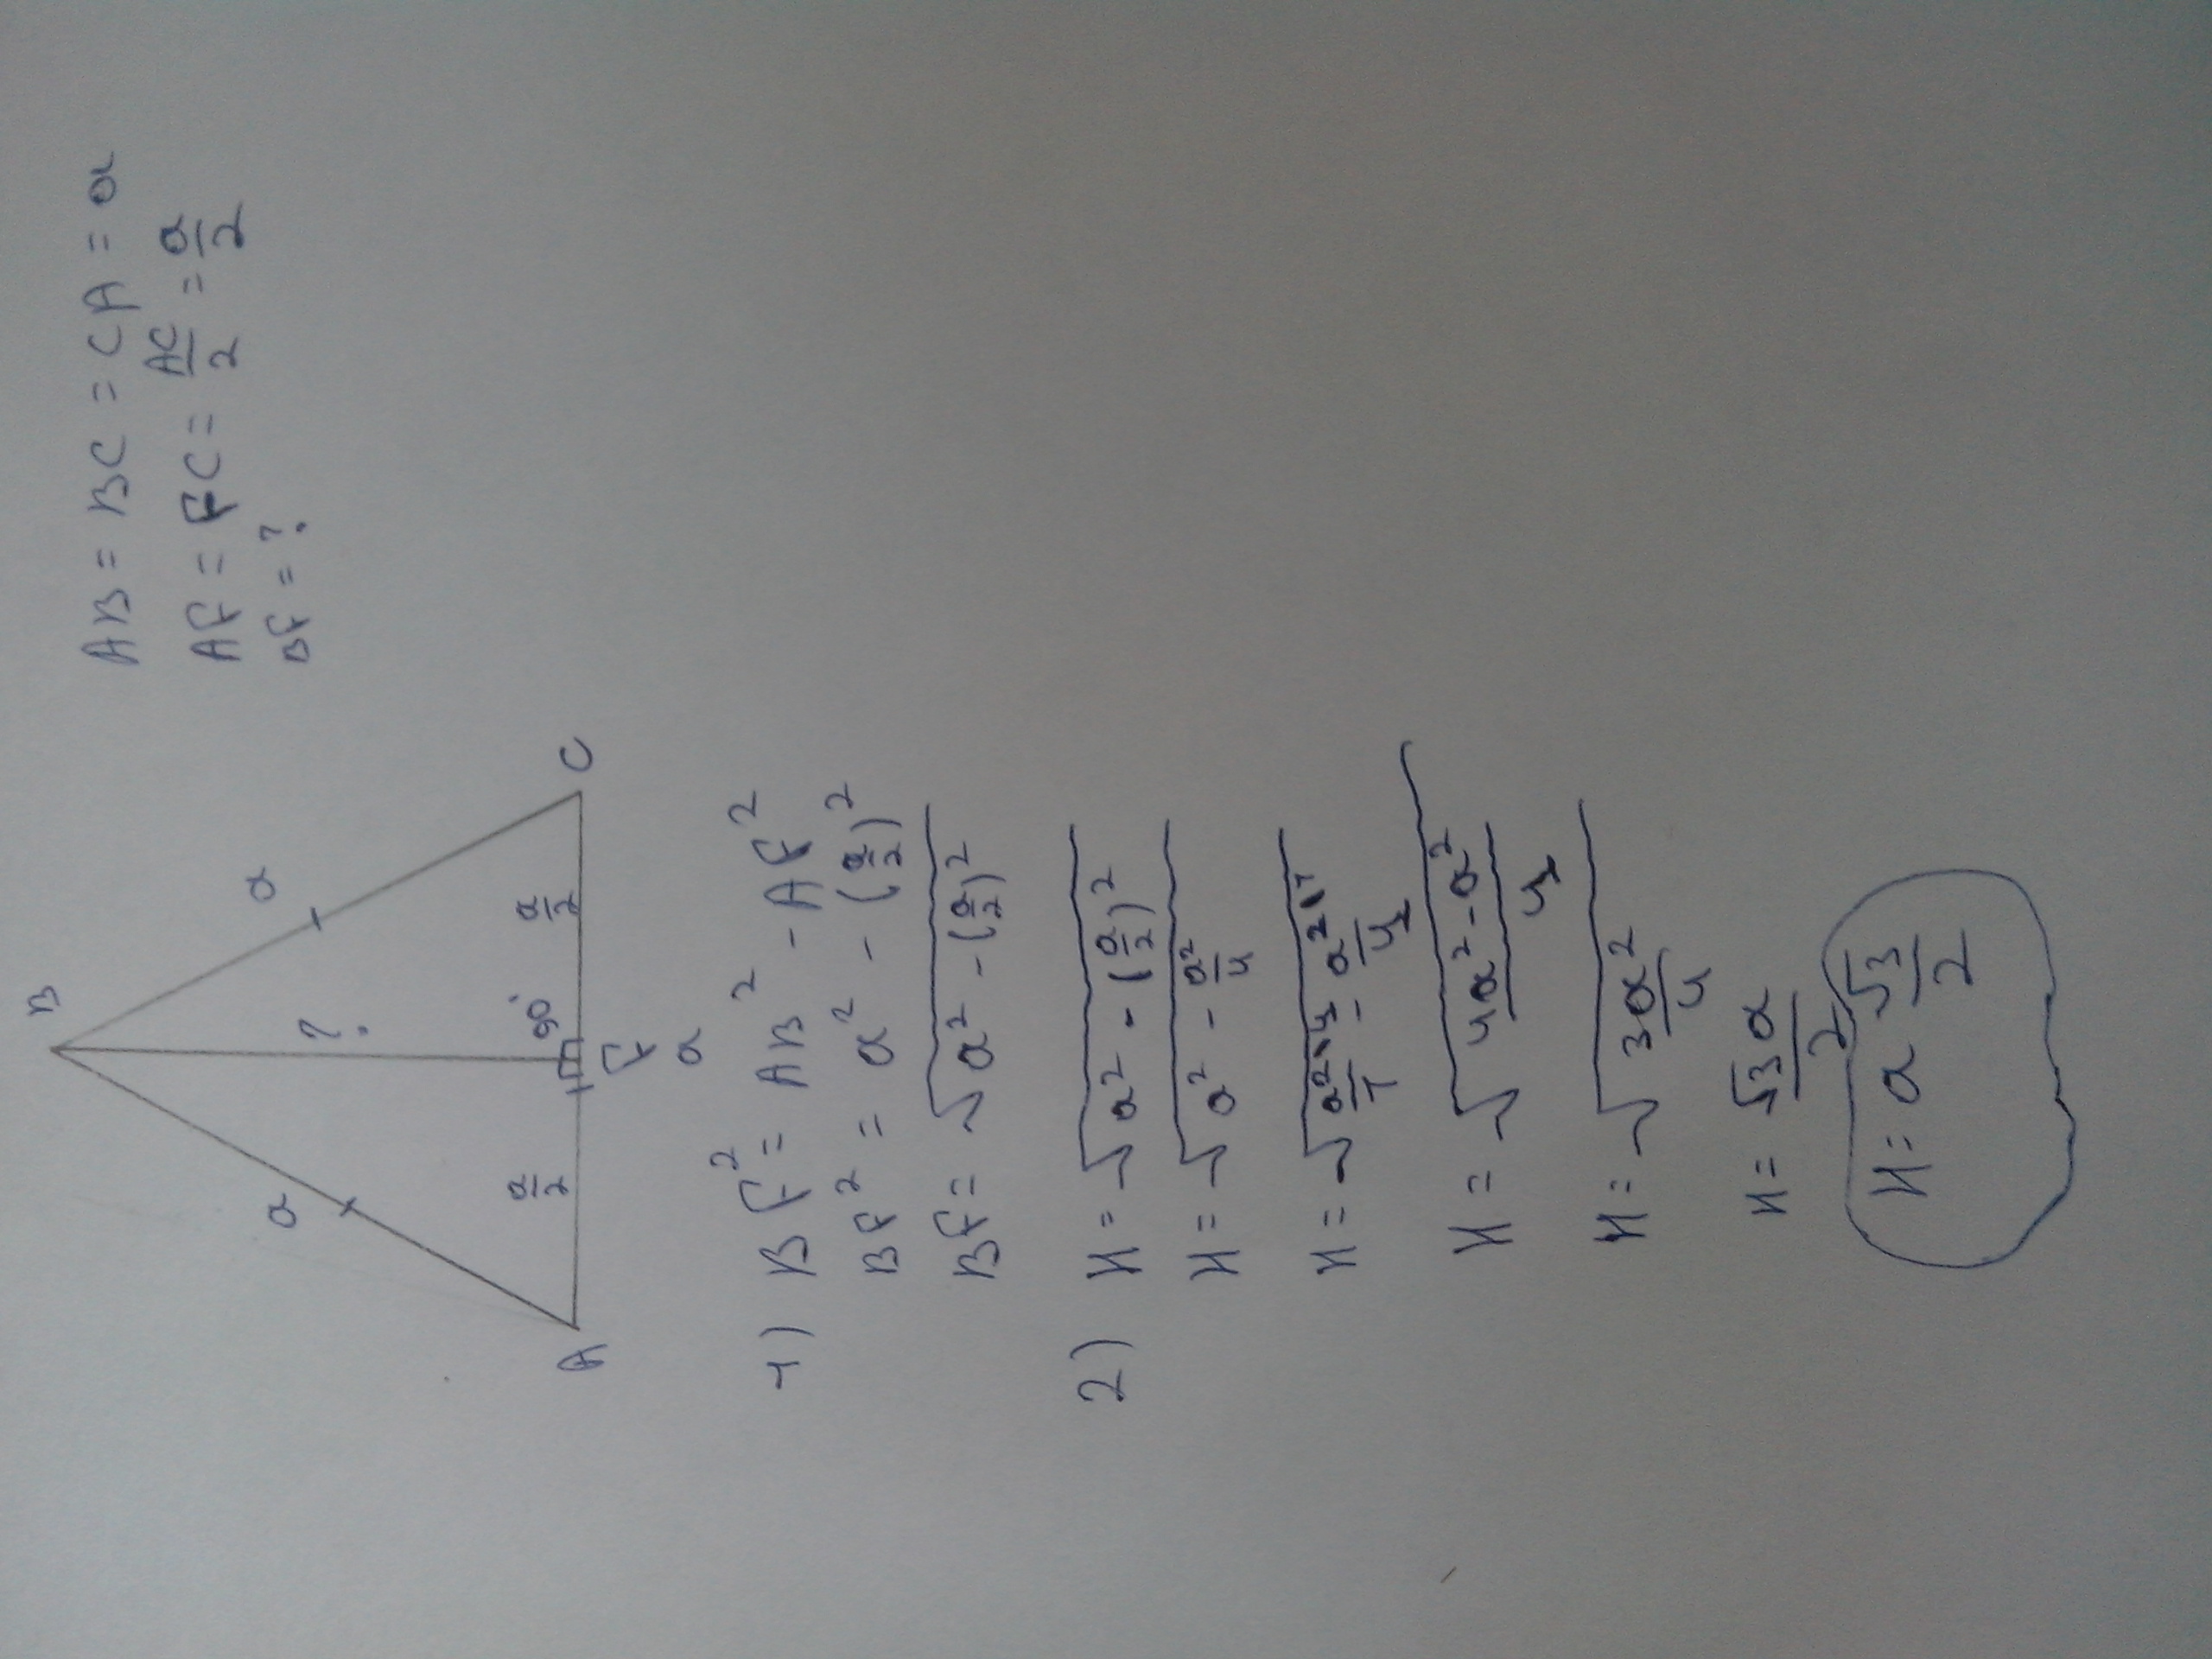 B
a
a
?
90°
a/2
a/2
A
F
C
a
AB = BC = CA = a
AF = FC = AC/2 = a/2
BF = ?
1) BF² = AB² - AF²
BF² = a² - (a/2)²
BF = √(a² - (a/2)²)
2) H = √(a² - (a/2)²)
H = √(a² - a²/4)
H = √(4a² - a²/4)
H = √(3a²/4)
H = √3a/2
H = a√3/2